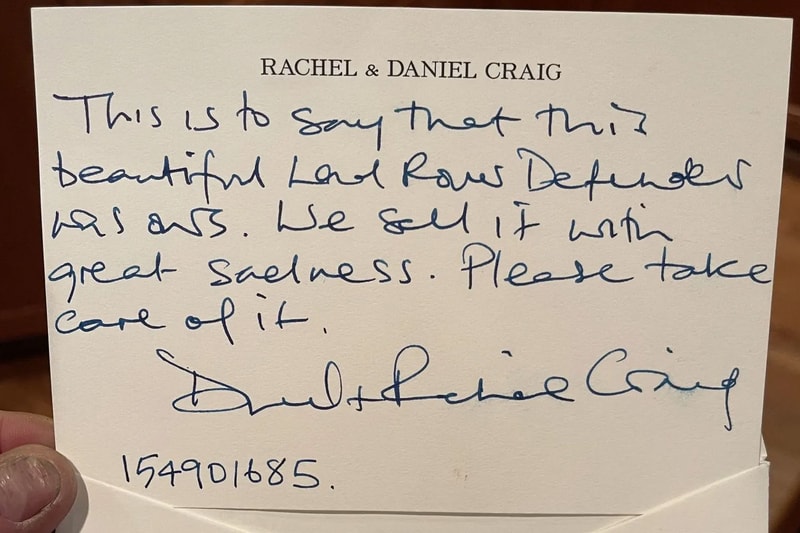 RACHEL & DANIEL CRAIG
This is to say that this
beautiful Land Rover Defender
was ours. We sell it with
great sadness. Please take
care of it.
Daniel + Rachel Craig
154901685.